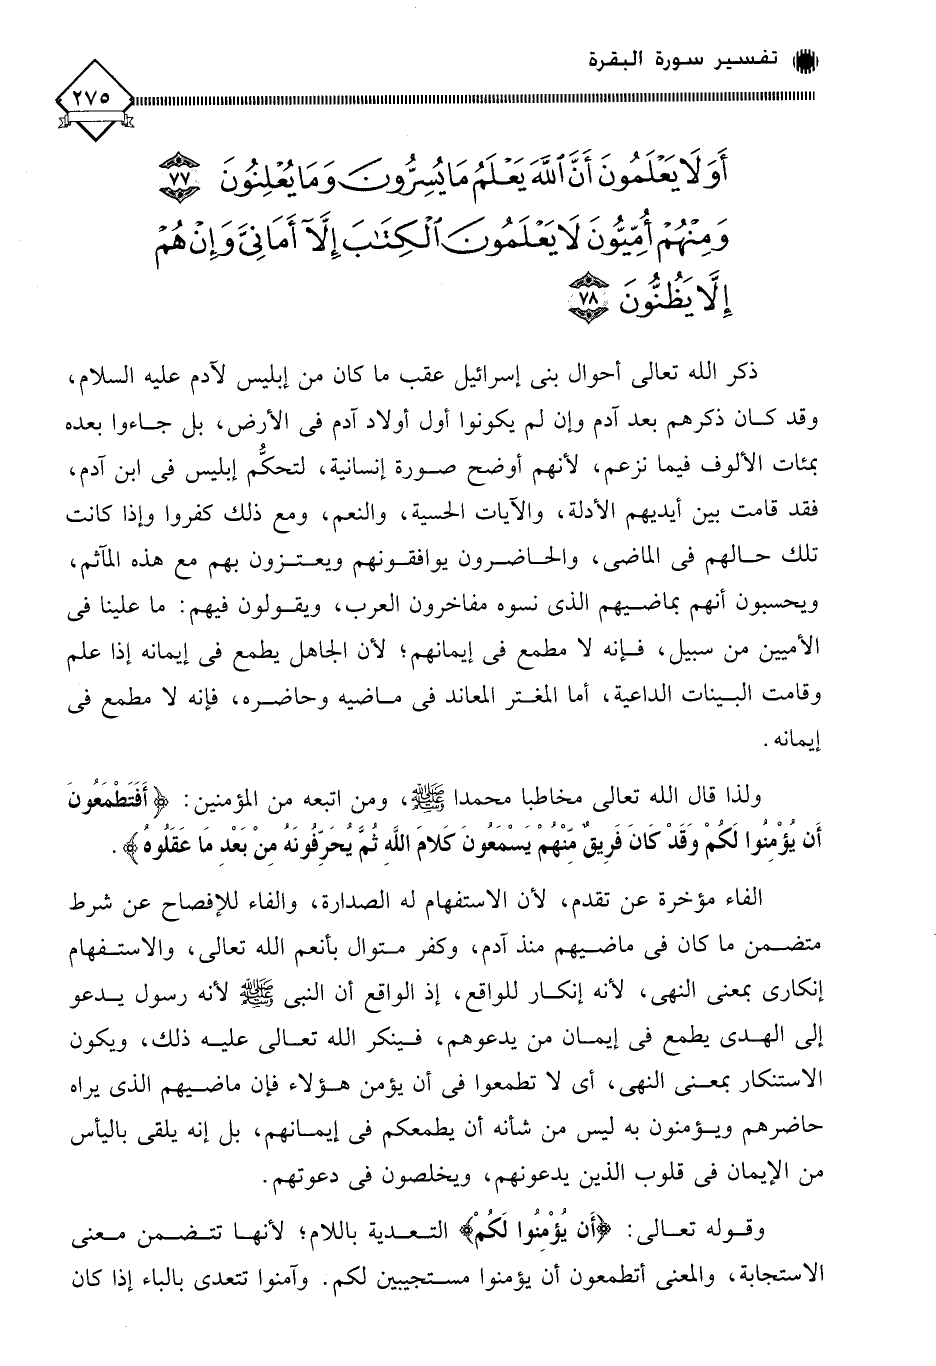 تفسير سورة البقرة
٢٧٥
أَوَلَا يَعْلَمُونَ أَنَّ ٱللَّهَ يَعْلَمُ مَا يُسِرُّونَ وَمَا يُعْلِنُونَ ٧٧
وَمِنْهُمْ أُمِّيُّونَ لَا يَعْلَمُونَ ٱلْكِتَٰبَ إِلَّآ أَمَانِىَّ وَإِنْ هُمْ
إِلَّا يَظُنُّونَ ٧٨
ذكر الله تعالى أحوال بنى إسرائيل عقب ما كان من إبليس لآدم عليه السلام،
وقد كان ذكرهم بعد آدم وإن لم يكونوا أول أولاد آدم فى الأرض، بل جاءوا بعده
بمئات الألوف فيما نزعم، لأنهم أوضح صورة إنسانية، لتحكُّم إبليس فى ابن آدم،
فقد قامت بين أيديهم الأدلة، والآيات الحسية، والنعم، ومع ذلك كفروا وإذا كانت
تلك حالهم فى الماضى، والحاضرون يوافقونهم ويعتزون بهم مع هذه المآثم،
ويحسبون أنهم بماضيهم الذى نسوه مفاخرون العرب، ويقولون فيهم: ما علينا فى
الأميين من سبيل، فإنه لا مطمع فى إيمانهم؛ لأن الجاهل يطمع فى إيمانه إذا علم
وقامت البينات الداعية، أما المغتر المعاند فى ماضيه وحاضره، فإنه لا مطمع فى
إيمانه.
ولذا قال الله تعالى مخاطبا محمدا ﷺ، ومن اتبعه من المؤمنين: ﴿أَفَتَطْمَعُونَ
أَن يُؤْمِنُوا لَكُمْ وَقَدْ كَانَ فَرِيقٌ مِّنْهُمْ يَسْمَعُونَ كَلامَ اللَّهِ ثُمَّ يُحَرِّفُونَهُ مِنْ بَعْدِ مَا عَقَلُوهُ﴾.
الفاء مؤخرة عن تقدم، لأن الاستفهام له الصدارة، والفاء للإفصاح عن شرط
متضمن ما كان فى ماضيهم منذ آدم، وكفر متوال بأنعم الله تعالى، والاستفهام
إنكارى بمعنى النهى، لأنه إنكار للواقع، إذ الواقع أن النبى ﷺ لأنه رسول يدعو
إلى الهدى يطمع فى إيمان من يدعوهم، فينكر الله تعالى عليه ذلك، ويكون
الاستنكار بمعنى النهى، أى لا تطمعوا فى أن يؤمن هؤلاء فإن ماضيهم الذى يراه
حاضرهم ويؤمنون به ليس من شأنه أن يطمعكم فى إيمانهم، بل إنه يلقى باليأس
من الإيمان فى قلوب الذين يدعونهم، ويخلصون فى دعوتهم.
وقوله تعالى: ﴿أَن يُؤْمِنُوا لَكُمْ﴾ التعدية باللام؛ لأنها تتضمن معنى
الاستجابة، والمعنى أتطمعون أن يؤمنوا مستجيبين لكم. وآمنوا تتعدى بالباء إذا كان